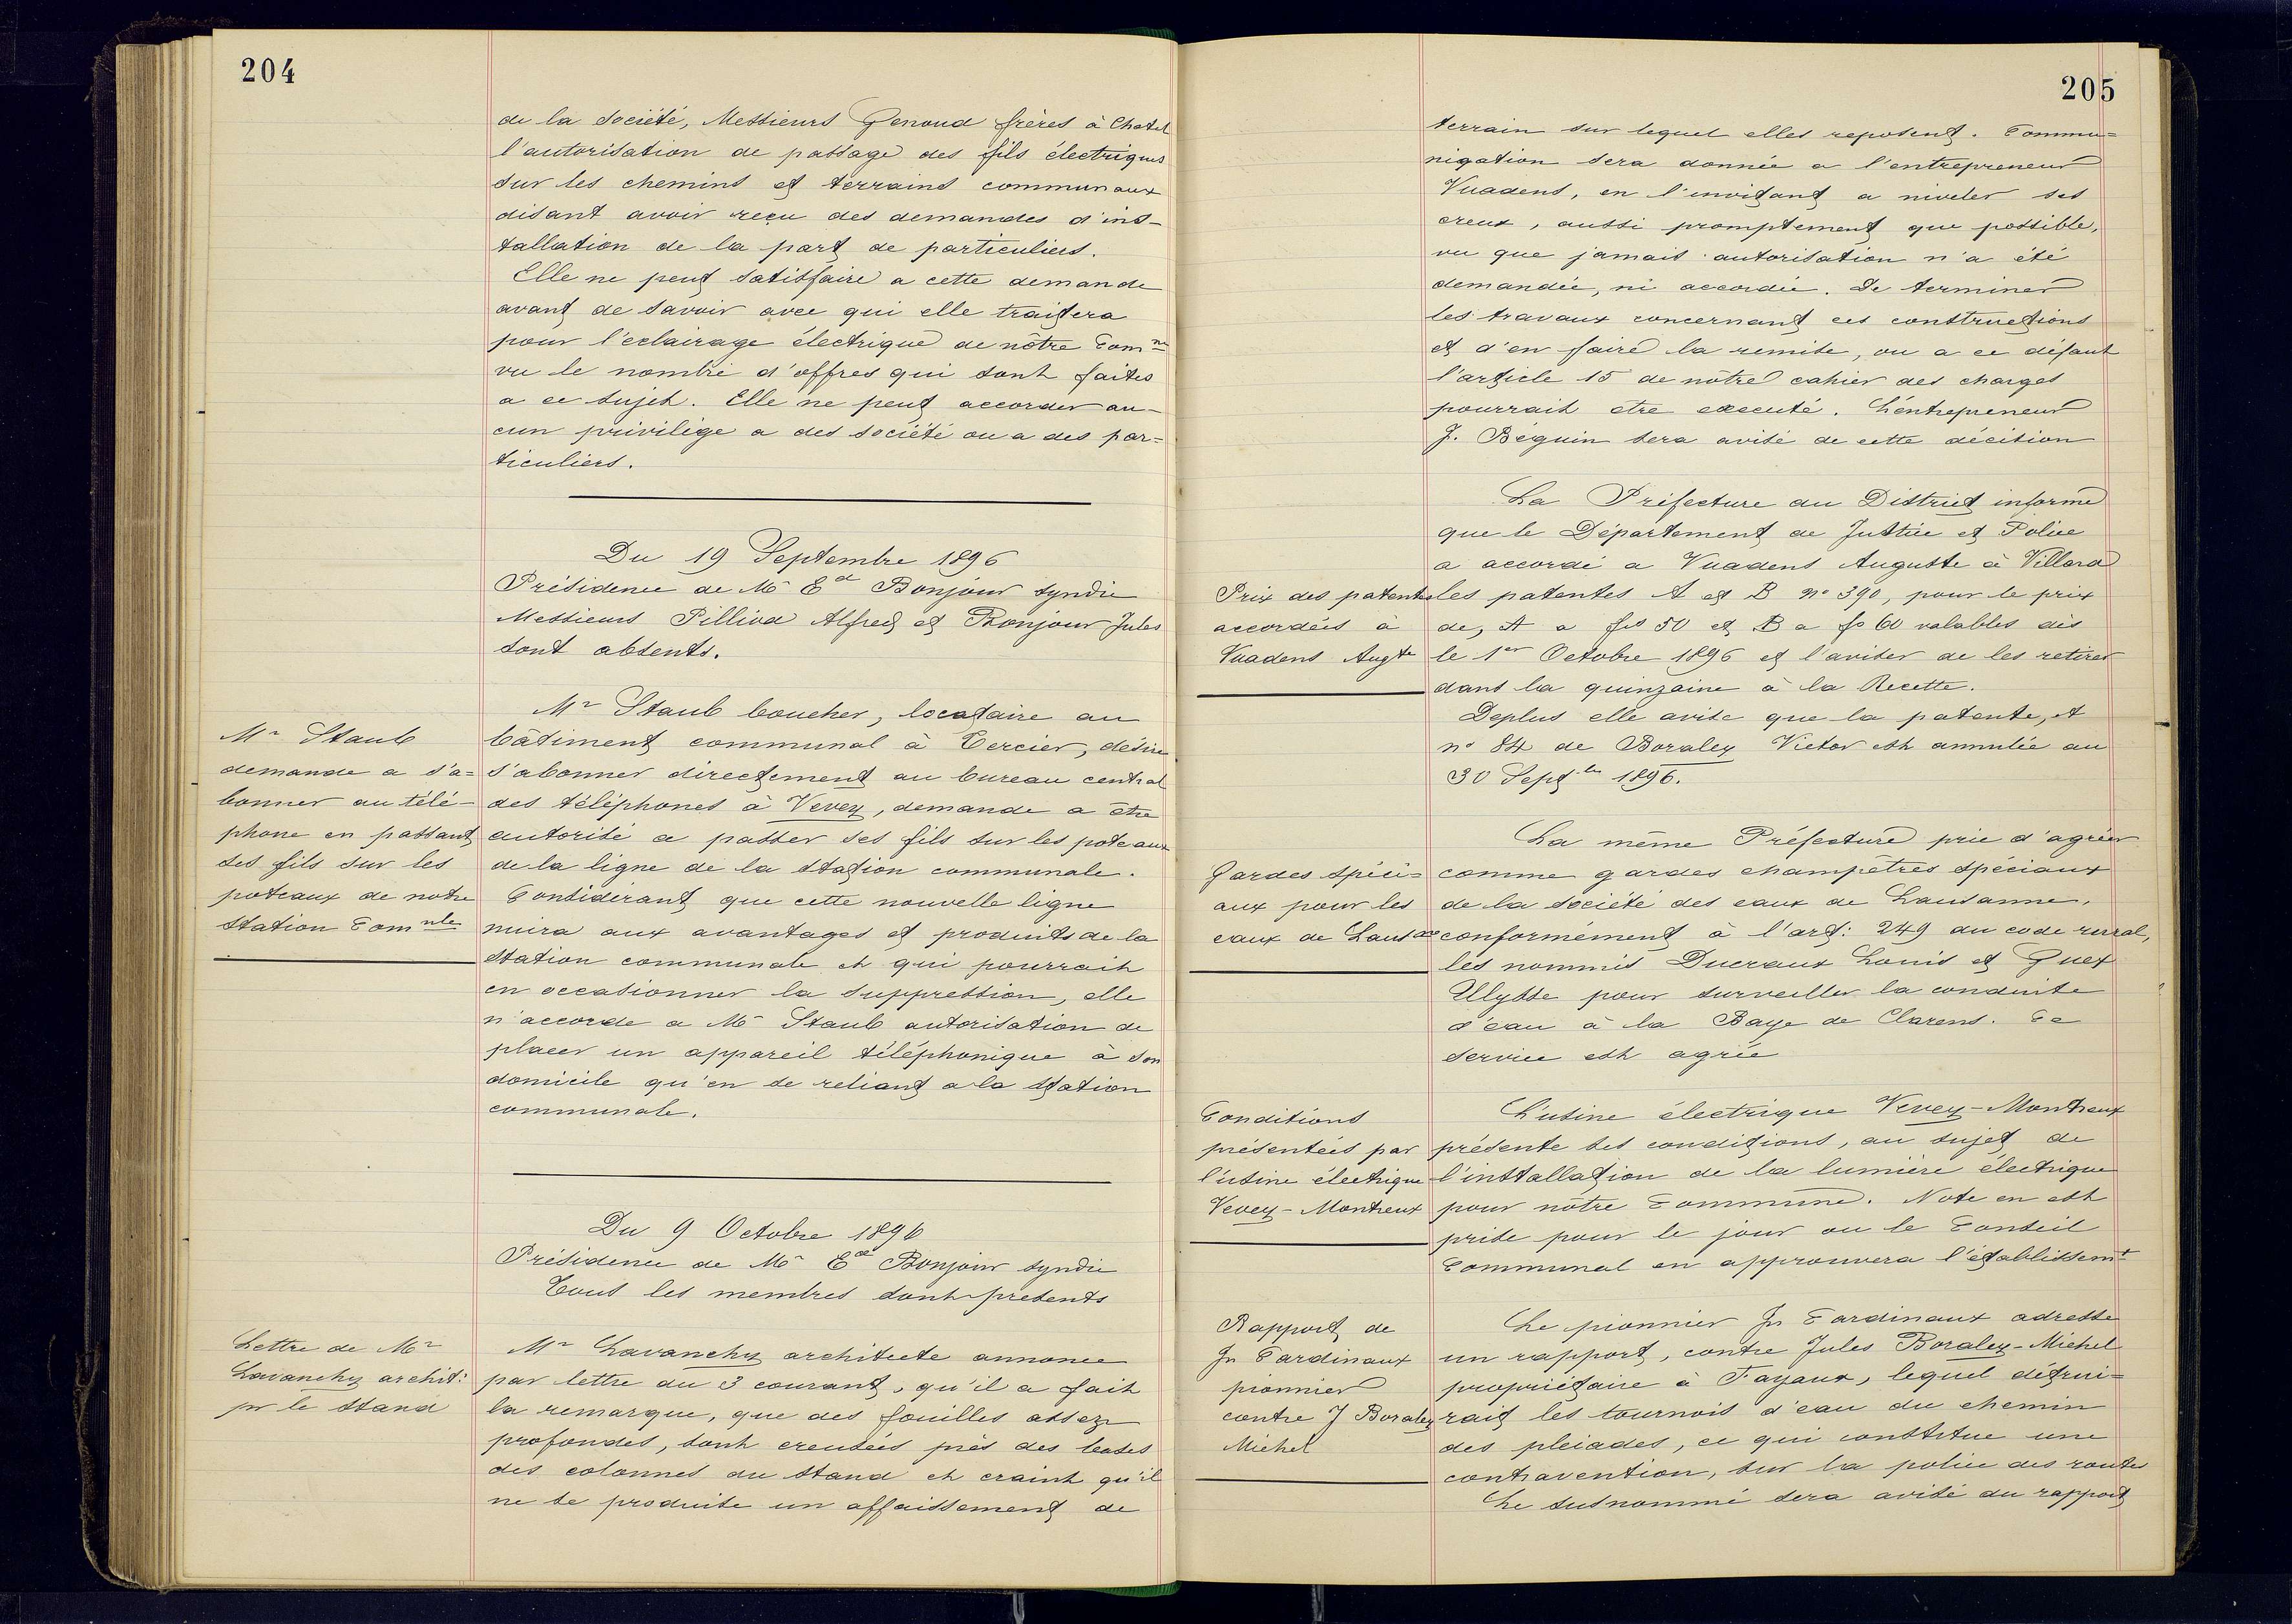 204
de la Société, Messieurs Genoud frères à Chatel
l'autorisation de passage des fils électriques
sur les chemins et terrains communaux
disant avoir reçu des demandes d'ins-
tallation de la part de particuliers.
Elle ne peut satisfaire a cette demande
avant de savoir avec qui elle traitera
pour l'eclairage électrique de nôtre Com ne
vu le nombre d'offres qui sont faites
a ce sujet. Elle ne peut accorder au-
cun privilège a des société ou a des par=
ticuliers.
Du 19 Septembre 1896
Présidence de Mr Ed Bonjour syndic
Messieurs Pilliod Alfred et Bonjour Jules
sont absents.
Mr Staub
demande a s'a=
bonner au télé-
phone en passant
ses fils sur les
poteaux de notre
Station Com nle
Mr Staub boucher, locataire au
bâtiment communal à Tercier, désire
s'abonner directement au bureau central
des téléphones à Vevey, demande a être
autorisé a passer ses fils sur les poteaux
de la ligne de la station communale.
Considérant que cette nouvelle ligne
nuira aux avantages et produits de la
station communale et qui pourrait
en occasionner la suppression, elle
n'accorde a Mr Staub autorisation de
placer un appareil téléphonique à son
domicile qu'en se reliant a la station
communale.
Du 9 Octobre 1896
Présidence de Mr Ed Bonjour syndic
Tous les membres sont présents
Lettre de Mr
Lavanchy archit:
pr le Stand
Mr Lavanchy architecte annonce
par lettre du 3 courant, qu'il a fait
la remarque, que des fouilles assez
profondes, sont creusées près des bases
des colonnes du stand et craint qu'il
ne se produise un affaissement de
205
terrain sur lequel elles reposent. Commu=
nication sera donnée a l'entrepreneur
Vuadens, en l'invitant a niveler ses
creux, aussi promptement que possible,
vu que jamais autorisation n'a été
demandée, ni accordée. De terminer
les travaux concernant ces constructions
et d'en faire la remise, ou a ce défaut
l'article 15 de nôtre cahier des charges
pourrait etre executé. L'entrepreneur
J. Béguin sera avisé de cette décision
Prix des patentes
accordées à
Vuadens Augte
La Préfecture du District informe
que le Département de Justice et Police
a accordé a Vuadens Auguste à Villard
les patentes A et B no 390, pour le prix
de, A a frs 50 et B a fr 60 valables dès
le 1er Octobre 1896 et l'aviser de les retirer
dans la quinzaine à la Recette.
Deplus elle avise que la patente, A
no 84 de Boraley Victor est annulée au
30 Sept bre 1896.
Gardes spéci=
aux pour les
eaux de Laus ne
La même Préfecture prie d'agréer
comme gardes champêtres spéciaux
de la société des eaux de Lausanne,
conformément à l'art: 249 du code rural,
les nommés Ducraux Louis et Guex
Ulysse pour surveiller la conduite
d'eau à la Baye de Clarens. Ce
service est agrée
Conditions
présentées par
l'usine électrique
Vevey-Montreux
L'usine électrique Vevey-Montreux
présente ses conditions, au sujet de
l'installation de la lumière électrique
pour nôtre Commune. Note en est
prise pour le jour ou le Conseil
Communal en approuvera l'établissemt
Rapport de
Jn Cardinaux
pionnier
contre J Boraley
Michel
Le pionnier Jn Cardinaux adresse
un rapport, contre Jules Boraley-Michel
propriétaire à Fayaux, lequel détrui=
rait les tournois d'eau du chemin
des pleiades, ce qui constitue une
contravention, sur la police des routes
Le susnommé sera avisé du rapport